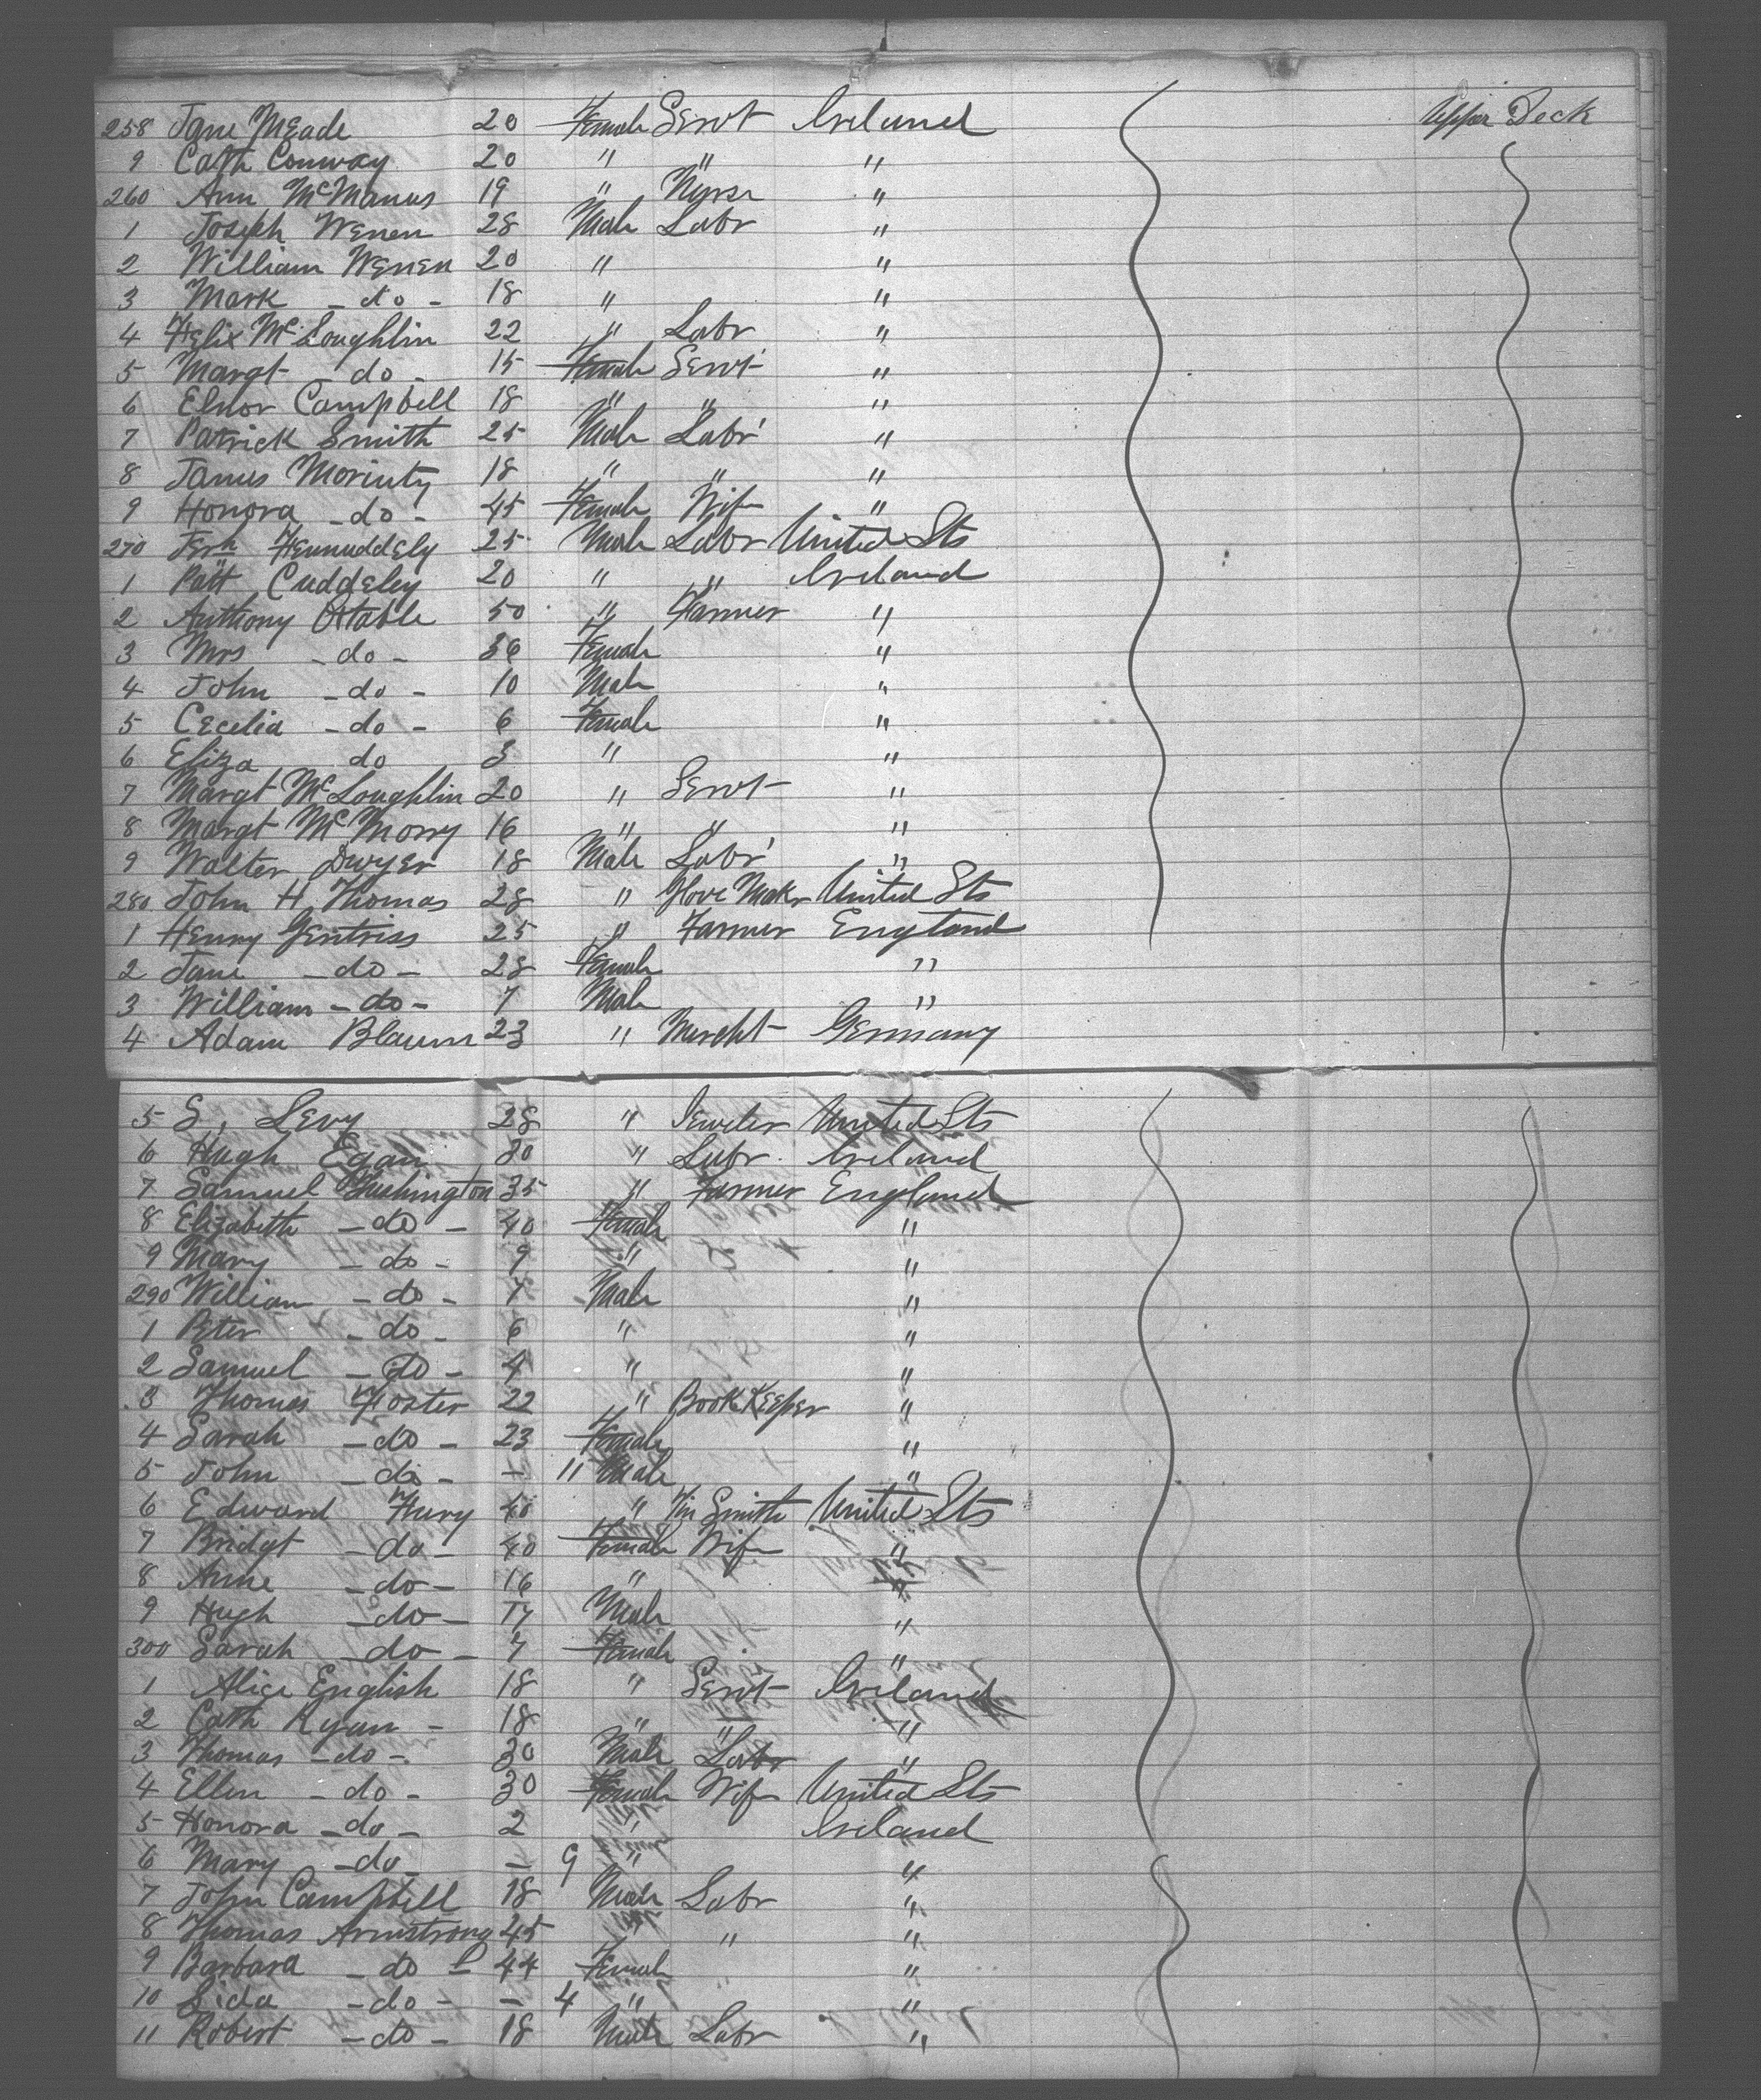 258 Jane Meade 20 Female Servt Ireland Upper Deck
9 Cath Conway 20 " " "
260 Ann McManus 19 " Nurse "
1 Joseph Wenen 28 Male Labr "
2 William Wenen 20 " "
3 Mark - do - 18 " "
4 Felix McLoughlin 22 " Labr "
5 Margt - do - 15 Female Servt "
6 Elnor Campbell 18 " " "
7 Patrick Smith 25 Male Labr "
8 James Moriuty 18 " " "
9 Honora - do - 45 Female Wife "
270 Jerh 25 Male Labr United Sts
1 Patt Cuddeley 20 " " Ireland
2 Anthony 50 " Farmer "
3 Mrs - do - 36 Female "
4 John - do - 10 Male "
5 Cecelia - do - 6 Female "
6 Eliza do 3 " "
7 Margt McLoughlin 20 " Servt "
8 Margt McMorry 16 " " "
9 Walter Dwyer 18 Male Labr "
280 John H Thomas 28 " Glove Maker United Sts
1 Henry Gentriss 25 " Farmer England
2 Jane - do - 28 Female "
3 William - do - 7 Male "
4 Adam Blaum 23 " Mercht Germany
5 S. Levy 28 " Jeweler United Sts
6 Hugh Egan 30 " Labr. Ireland
7 Samuel 35 " Farmer England
8 Elizabeth - do - 40 Female "
9 Mary - do - 9 " "
290 William - do - 7 Male "
1 Peter - do - 6 " "
2 Samuel - do - 4 " "
3 Thomas Foster 22 " Book Keeper "
4 Sarah - do - 23 Female "
5 John - do - - 11 Male "
6 Edward Fury 40 " Tin Smith United Sts
7 Bridgt - do - 40 Female Wife "
8 Anne - do - 16 " "
9 Hugh - do - 14 Male "
300 Sarah - do - 7 Female "
1 Alice English 18 " Servt Ireland
2 Cath Ryan - 18 " " "
3 Thomas - do -. 30 Male Labr "
4 Ellen - do - 30 Female Wife United Sts
5 Honora - do - 2 " Ireland
6 Mary - do - - 9 " "
7 John Campbell 18 Male Labr "
8 Thomas Armstrong 45 " " "
9 Barbara - do - 44 Female "
10 - do - - 4 " "
11 Robert - do - 18 Male Labr "